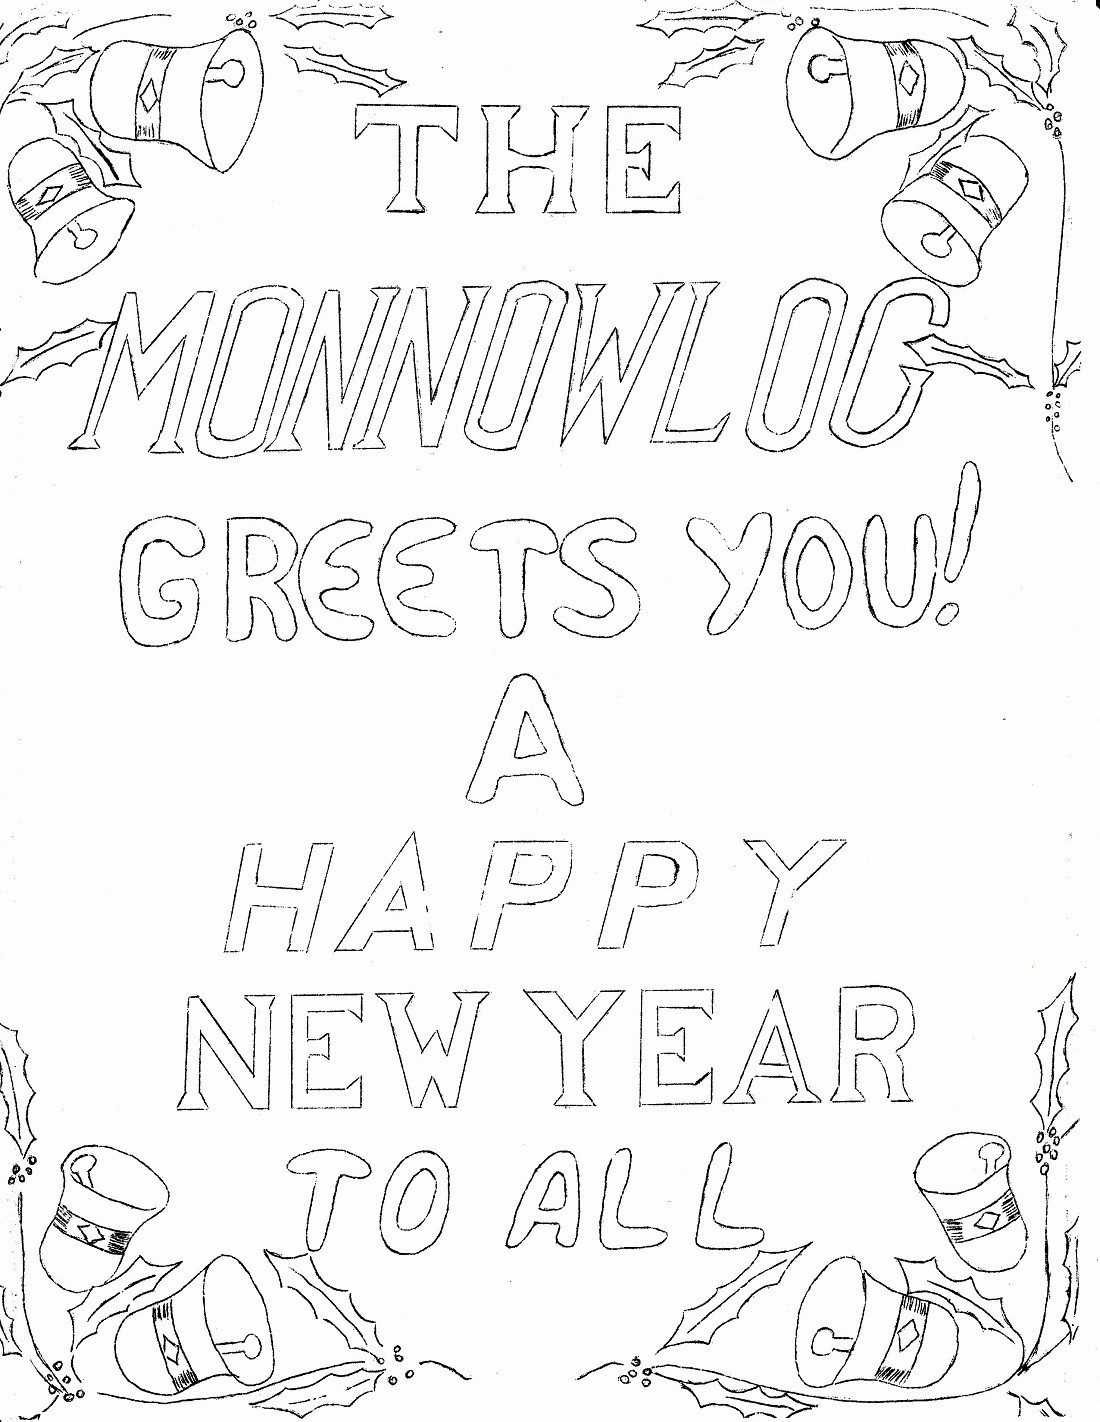 THE
MONNOWLOC
GREETS YOU!
A
HAPPY
NEW YEAR
TO ALL